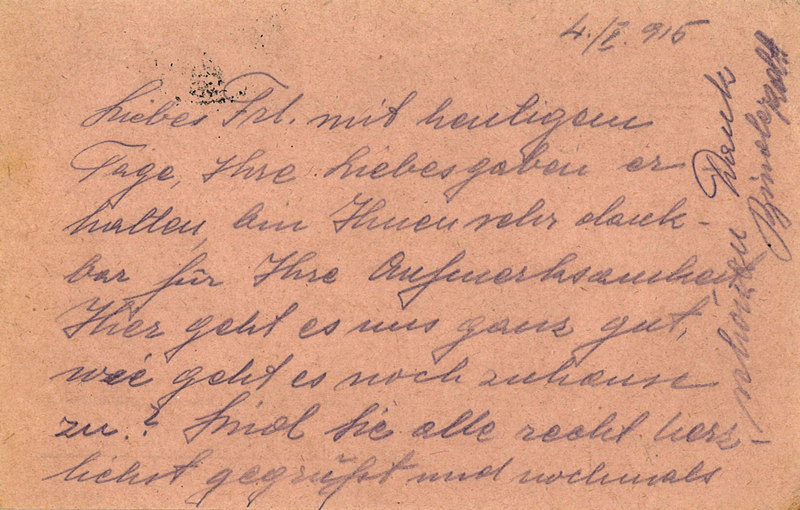 4./I. 915
Liebes Frl. mit heutigem
Tage, Ihre Liebesgaben er
halten, bin Ihnen sehr dank-
bar für Ihre Aufmerksamkeit
Hier geht es uns ganz gut,
wie geht es noch zuhause
zu.? Sind Sie alle recht herz-
lichst gegrüßt und nochmals
schönsten Dank